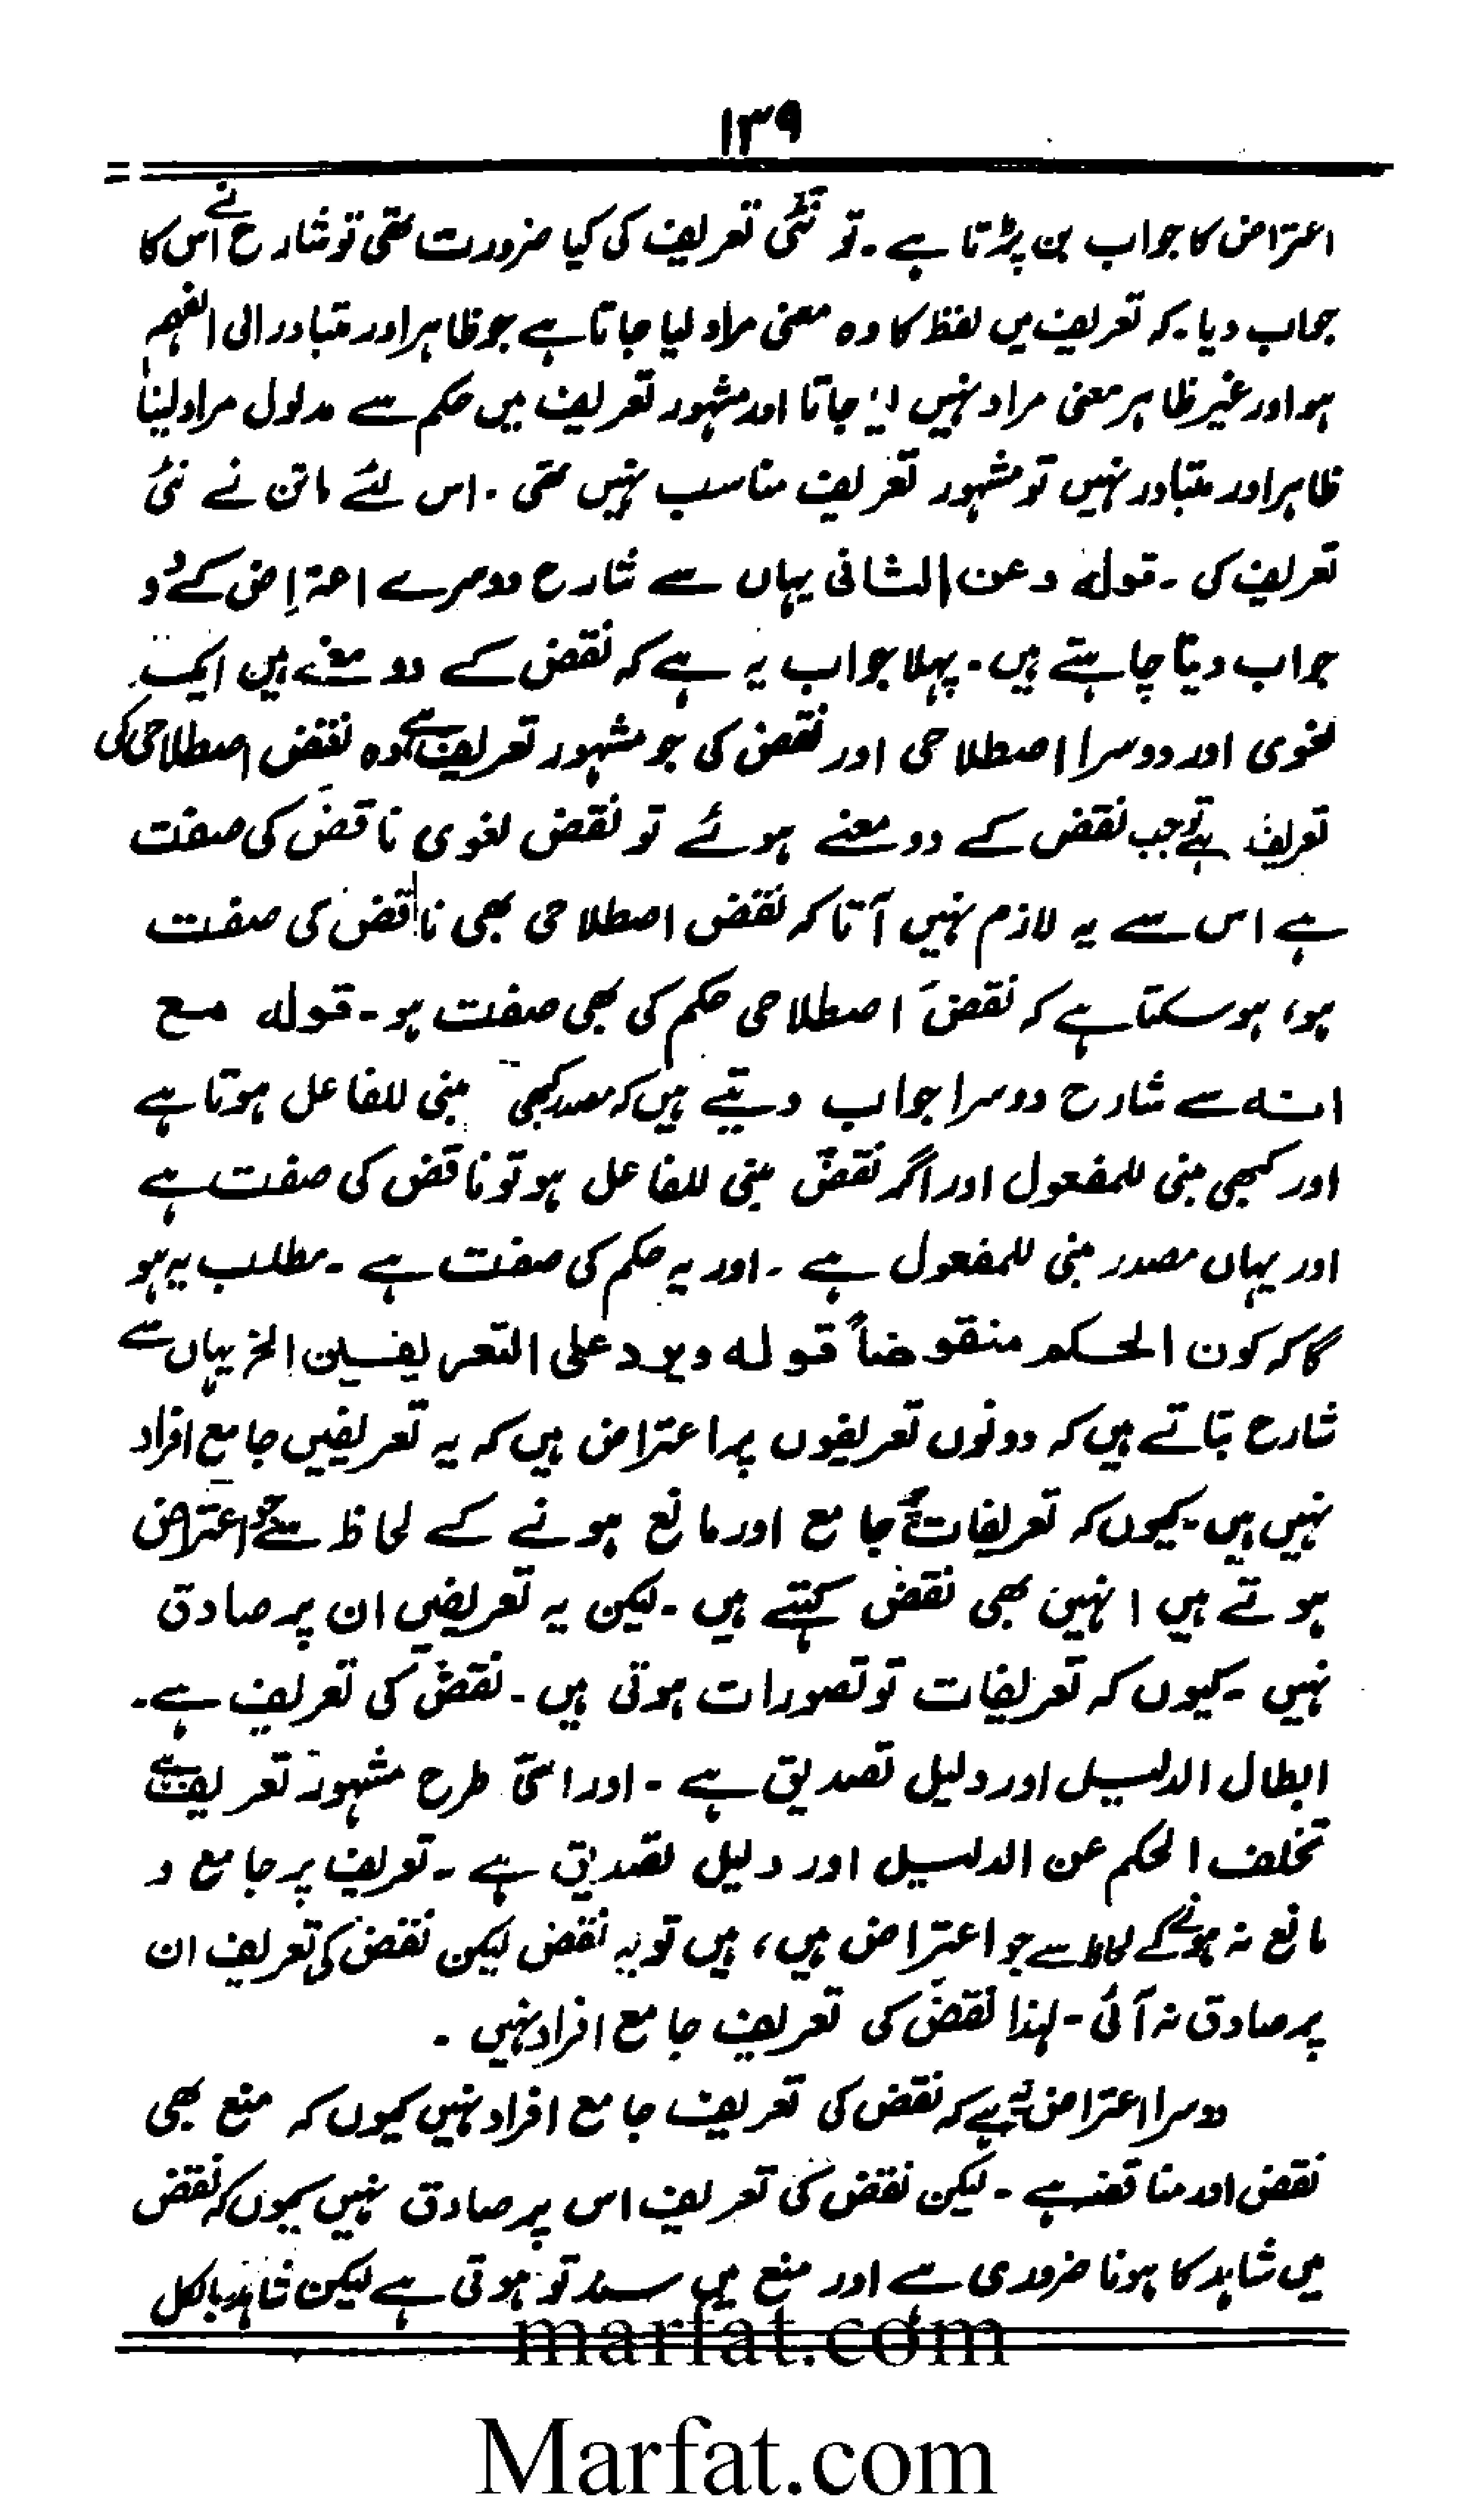 ۱۳۹
اعتراض کا جواب بن پڑتا ہے۔ تو نئی تعریف کی کیا ضرورت تھی تو شارح نے اس کا
جواب دیا۔ کہ تعریف میں لفظ کا وہ معنی مراد لیا جاتا ہے جو ظاہر اور متبادر الی الفہم
ہو اور غیر ظاہر معنی مراد نہیں لیا جاتا اور مشہور تعریف میں حکم سے مدلول مراد لینا
ظاہر اور متبادر نہیں تو مشہور تعریف مناسب نہیں تھی۔ اس لئے ماتن نے نئی
تعریف کی۔ قولہ وعن الثانی یہاں سے شارح دوسرے اعتراض کے دو
جواب دینا چاہتے ہیں۔ پہلا جواب یہ ہے کہ نقض کے دو معنے ہیں ایک
لغوی اور دوسرا اصطلاحی اور نقض کی جو مشہور تعریف ہے وہ نقض اصطلاحی کی
تعریف ہے تو جب نقض کے دو معنے ہوئے تو نقض لغوی ناقض کی صفت
ہے اس سے یہ لازم نہیں آتا کہ نقض اصطلاحی بھی ناقض کی صفت
ہو، ہو سکتا ہے کہ نقض اصطلاحی حکم کی بھی صفت ہو۔ قولہ مع
انہ سے شارح دوسرا جواب دیتے ہیں کہ مصدر کبھی مبنی للفاعل ہوتا ہے
اور کبھی مبنی للمفعول اور اگر نقض مبنی للفاعل ہو تو ناقض کی صفت ہے
اور یہاں مصدر مبنی للمفعول ہے۔ اور یہ حکم کی صفت ہے۔ مطلب یہ ہو
گا کہ کون الحکم منقوضاً قولہ ویرد علی التعریفین الخ یہاں سے
شارح بتاتے ہیں کہ دونوں تعریفوں پر اعتراض ہیں کہ یہ تعریفیں جامع افراد
نہیں ہیں۔ کیوں کہ تعریفات کے جامع اور مانع ہونے کے لحاظ سے جو اعتراض
ہوتے ہیں انہیں بھی نقض کہتے ہیں۔ لیکن یہ تعریفیں ان پر صادق
نہیں۔ کیوں کہ تعریفات تو تصورات ہوتی ہیں۔ نقض کی تعریف ہے۔
ابطال الدلیل اور دلیل تصدیق ہے۔ اور اسی طرح مشہور تعریف ہے
تخلف الحکم عن الدلیل اور دلیل تصدیق ہے۔ تعریف پر جامع و
مانع نہ ہونے کے لحاظ سے جو اعتراض ہیں، ہیں تو یہ نقض لیکن نقض کی تعریف ان
پر صادق نہ آئی۔ لہذا نقض کی تعریف جامع افراد نہیں۔
دوسرا اعتراض یہ ہے کہ نقض کی تعریف جامع افراد نہیں کیوں کہ منع بھی
نقض اور مناقضہ ہے۔ لیکن نقض کی تعریف اس پر صادق نہیں کیوں کہ نقض
میں شاہد کا ہونا ضروری ہے اور منع میں سند تو ہوتی ہے لیکن شاہد بالکل
marfat.com
Marfat.com